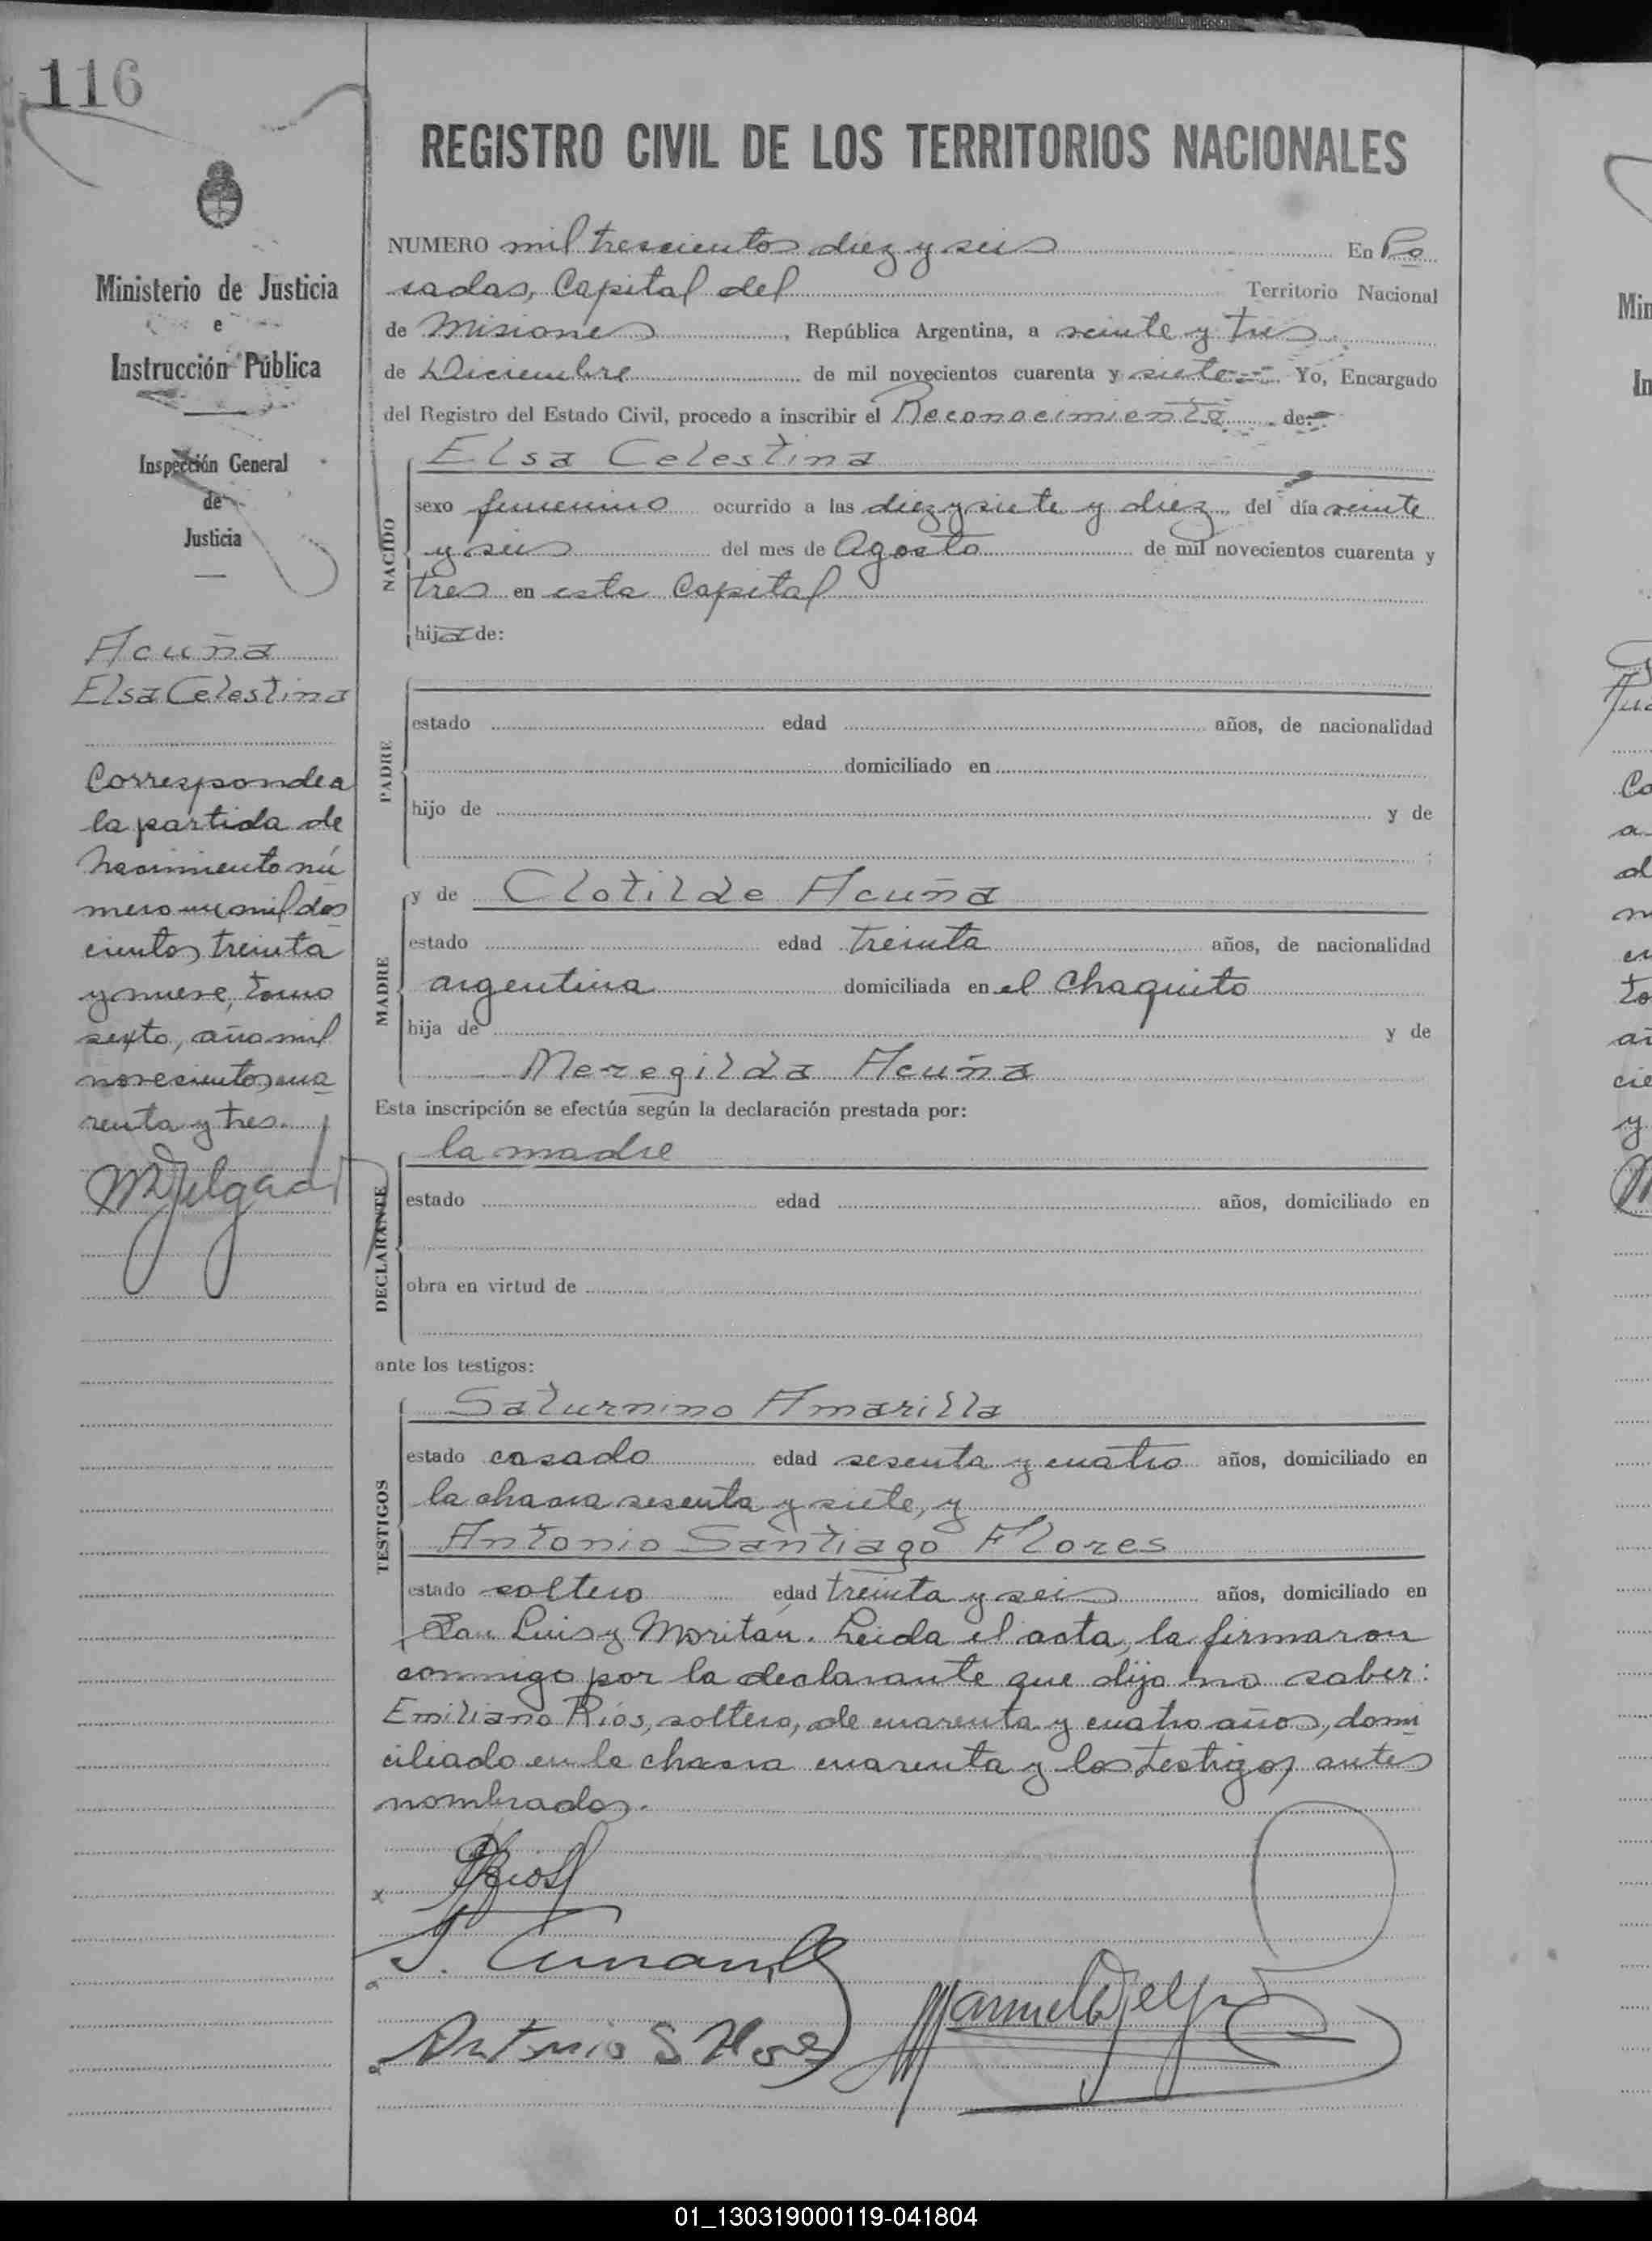 116
REGISTRO CIVIL DE LOS TERRITORIOS NACIONALES
Ministerio de Justicia
e
Instrucción Pública
Inspección General
de
Justicia
Acuña
Elsa Celestina
Corresponde a
la partida de
nacimiento nú
mero mil dos
cientos treinta
y nueve, tomo
sexto, año mil
novecientos cua
renta y tres.
MDelgado
NUMERO mil trescientos diez y seis En Po
sadas, Capital del Territorio Nacional
de Misiones, República Argentina, a veinte y tres
de Diciembre de mil novecientos cuarenta y siete Yo, Encargado
del Registro del Estado Civil, procedo a inscribir el Reconocimiento de
NACIDO
Elsa Celestina
sexo femenino ocurrido a las diez y siete y diez del día veinte
y seis del mes de Agosto de mil novecientos cuarenta y
tres en esta Capital
hija de:
PADRE
estado edad años, de nacionalidad
domiciliado en
hijo de y de
MADRE
y de Clotilde Acuña
estado edad treinta años, de nacionalidad
argentina domiciliada en el Chaquito
hija de y de
Meregilda Acuña
Esta inscripción se efectúa según la declaración prestada por:
DECLARANTE
la madre
estado edad años, domiciliado en
obra en virtud de
ante los testigos:
TESTIGOS
Saturnino Amarilla
estado casado edad sesenta y cuatro años, domiciliado en
la chacra sesenta y siete, y
Antonio Santiago Flores
estado soltero edad treinta y seis años, domiciliado en
San Luis y Moritán. Leida el acta, la firmaron
conmigo por la declarante que dijo no saber:
Emiliano Ríos, soltero, de cuarenta y cuatro años, domi
ciliado en la chacra cuarenta y los testigos antes
nombrados.
ERios
S. Amarilla
Antonio S Flores
Manuel Delgado
Min
In
Co
a
01_130319000119-041804